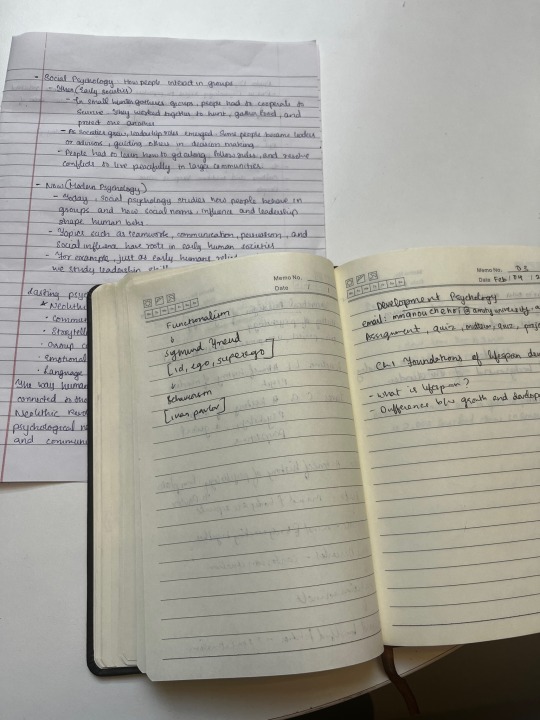 - Social Psychology - How people interact in groups
- Then (Early societies)
- In small hunter gatherer groups, people had to cooperate to
survive. They worked together to hunt, gather food, and
protect one another
- As societies grew, leadership roles emerged. Some people became leaders
or advisors, guiding others in decision making
- People had to learn how to get along, follow rules, and resolve
conflicts to live peacefully in larger communities.
- Now (Modern Psychology)
- Today, social psychology studies how people behave in
groups and how social norms, influence and leadership
shape human
- Topics such as teamwork, communication, persuasion, and
social influence have roots in early human societies
- For example, just as early humans
we study leadership
lasting
Neolith
Storytell
Group c
Emotional
Language
The way human
connected to
Neolithic Rev
psychological
and commun
Memo No.
Date
Functionalism
↓
Sygmund Freud
[id, ego, superego]
↓
Behaviorism
[ivan pavlov]
Memo No. DS
Date Feb / 04 / 2
Development Psychology
email:
Assignment, quiz, midterm, quiz,
Ch.1 Foundations of lifespan
- What is lifespan?
- Difference b/w growth and